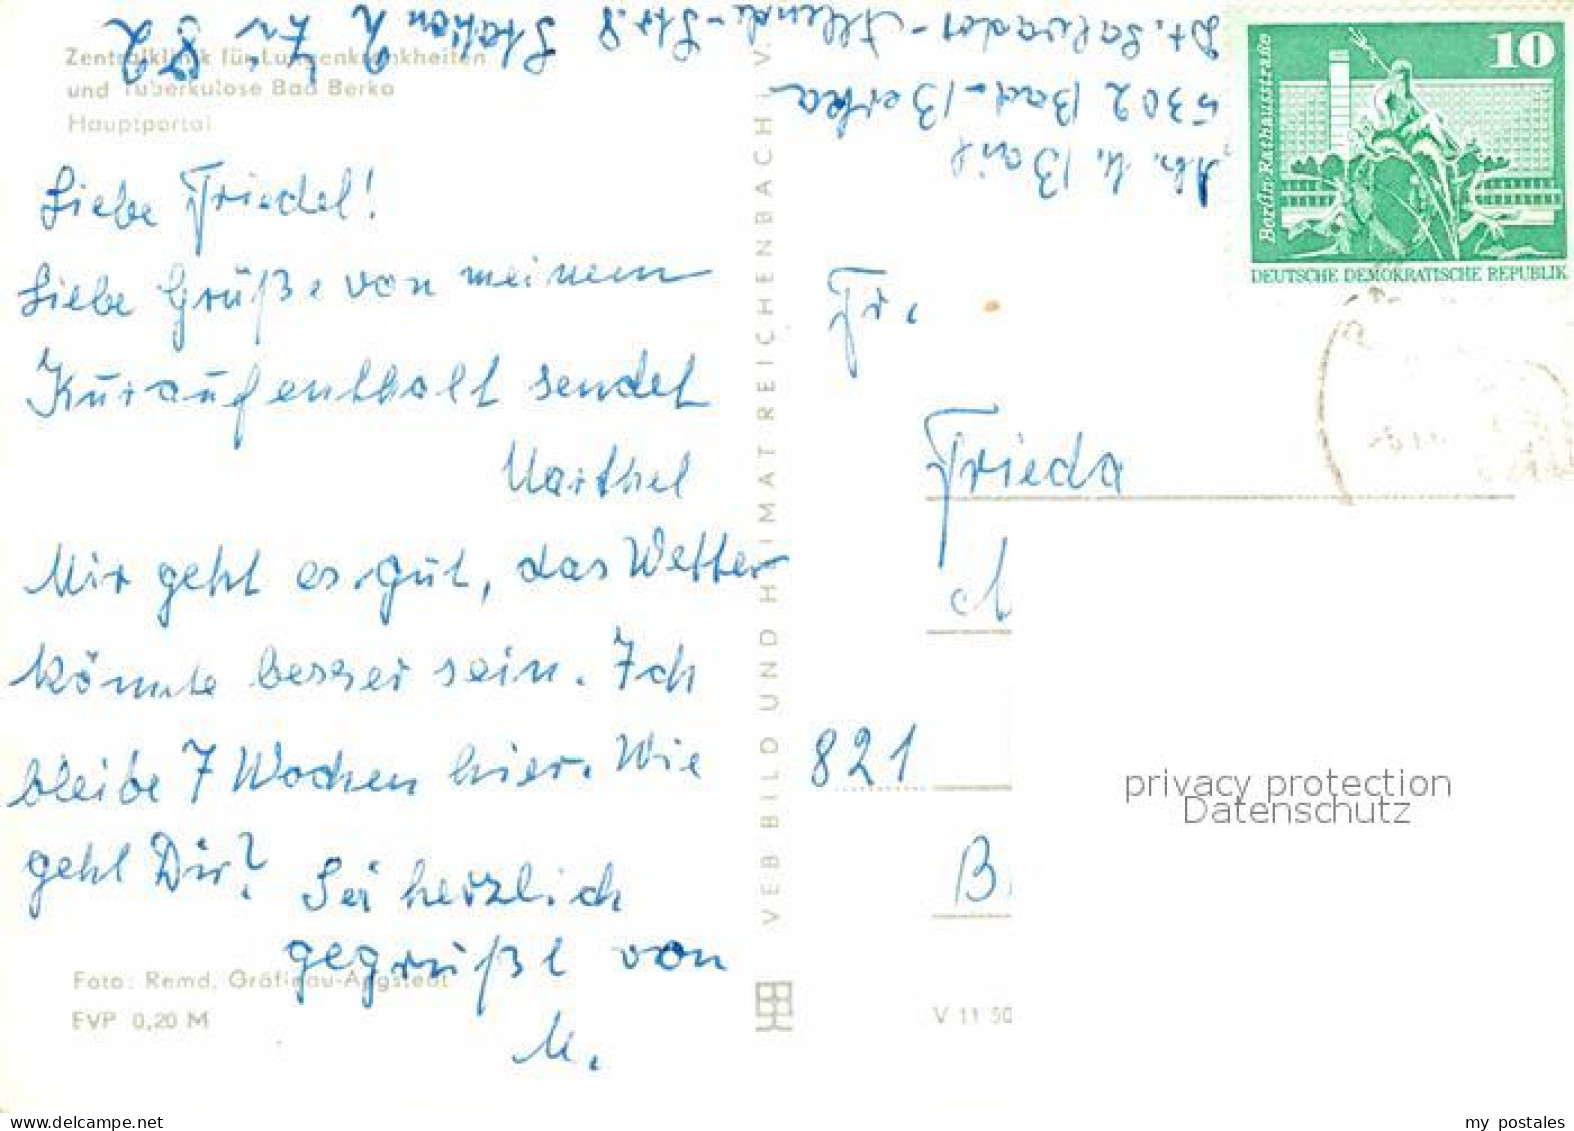 Zentralklinik für Lungenkrankheiten
und Tuberkulose Bad Berka
Hauptportal
Liebe Friedel!
Liebe Grüße von meinem
Kuraufenthalt sendet
Marthel
Mir geht es gut, das Wetter
könnte besser sein. Ich
bleibe 7 Wochen hier. Wie
geht Dir? Sei herzlich
gegrüßt von
M.
Foto: Remd, Gräfinau-Angstedt
EVP 0,20 M
VEB BILD UND HEIMAT REICHENBACH I. V.
5302 Bad-Berka
Dr. Salvador-Allende-Str. 8
Station
10
Berlin Rathausstraße
DEUTSCHE DEMOKRATISCHE REPUBLIK
Fr.
Frieda
821
B
V 11 50
privacy protection
Datenschutz
my postales